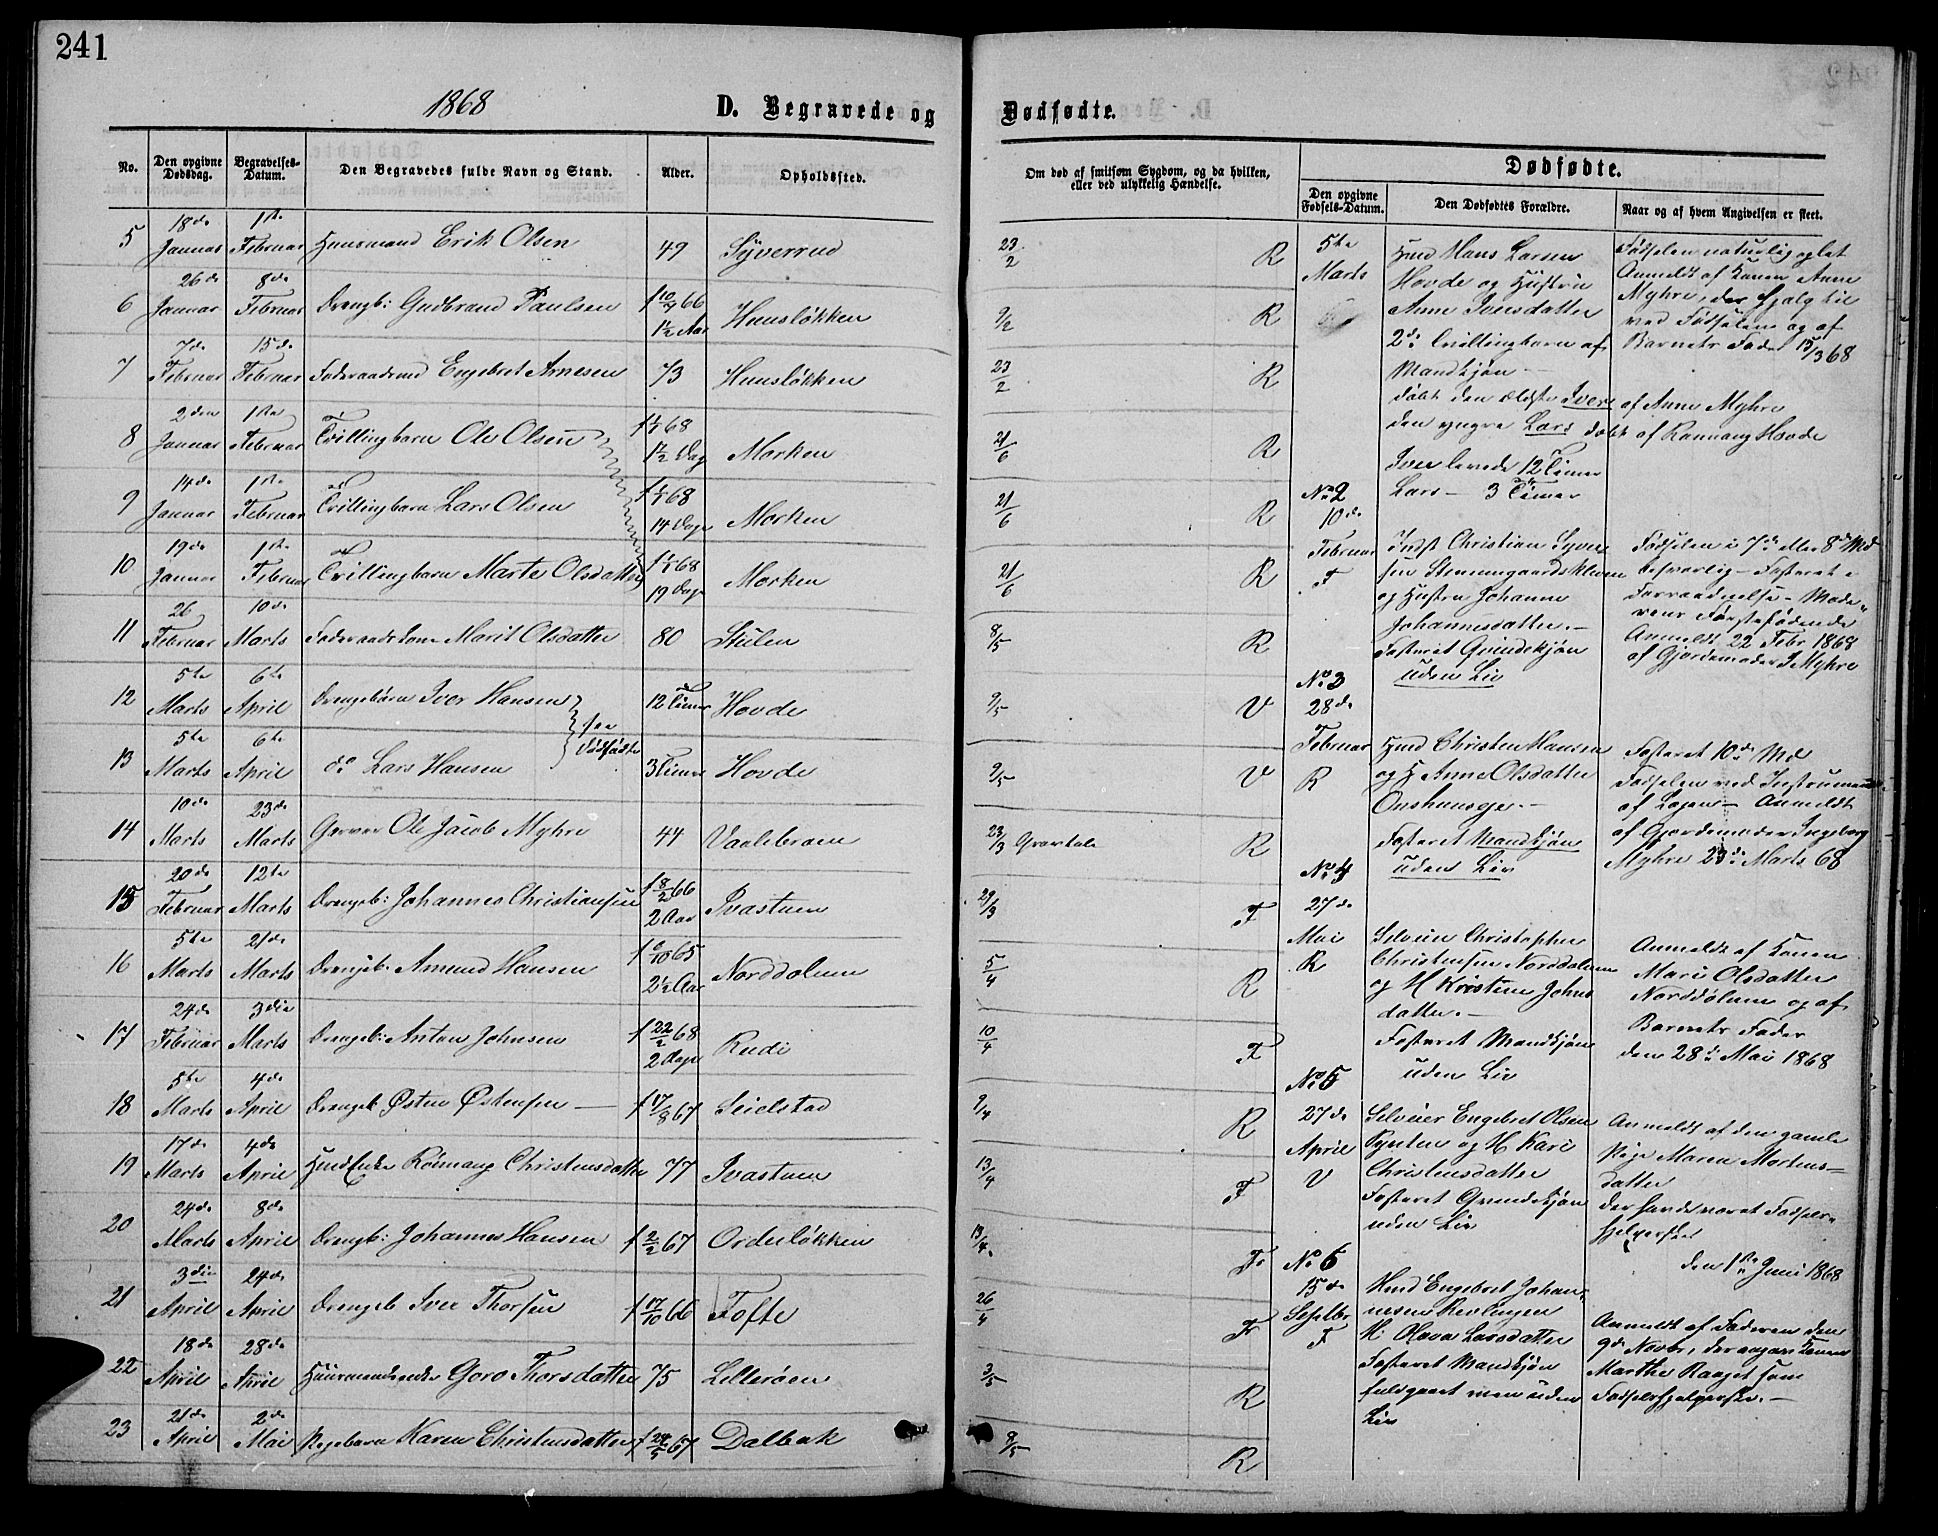 241
1868
D. Begravede og
Dødfødte.
No.
Den opgivne Dødsdag.
Begravelses-Datum.
Den Begravedes fulde Navn og Stand.
Alder.
Opholdssted.
5 18de Januar 1ste Februar Huusmand Erik Olsen 49 Syverrud
6 26de Januar 8de Februar Drengb: Gudbrand Paulsen 1½ Aar Huusløkken
7 7de Februar 15de Februar Engebret Arnesen 73 Huusløkken
8 2den Januar 1ste Februar Tvillingbarn Ole Olsen f 1/1 68 1½ Dag Morken
9 14de Januar 1ste Februar Tvillingbarn Lars Olsen f 1/1 68 14 Dage Morken
10 19de Januar 1ste Februar Tvillingbarn Marte Olsdatter f 1/1 68 19 Dage Morken
11 26 Februar 10de Marts Marit Olsdatter 80 Stulen
12 5te Marts 6te April Drengebørn Iver Hansen 12 Timer Hovde
see Dødfødte
13 5te Marts 6te April do Lars Hansen 3 Timer Hovde
14 10de Marts 23de Marts Garver Ole Jacob Myhre 44 Vaalebroen
15 20de Februar 12te Marts Drengeb: Johannes Christiansen f 8/2 66 2 Aar Ivastuen
16 5te Marts 21de Marts Drengeb. Amund Hansen 2½ Aar Norddolum
17 24de Februar 3die Marts Drengeb: Anton Johnsen f 22/2 68 2 dage Rudi
18 5te Marts 4de April Drengeb. Østen Østensen — f 17/8 67 Seielstad
19 17de Marts 4de April Christensdatter 77 Ivastuen
20 24de Marts 8de April Drengb: Johannes Hansen f 2/2 67 Orderløkken
21 3die April 24de April Drengeb Iver Thorsen f 17/10 66 Tofte
22 18de April 28de April Goro Thorsdatter 75 Lillerøen
23 21de April 2de Mai Pigebarn Karen Christensdatter Dalbak
Om død af smitsom Sygdom, og da hvilken, eller ved ulykkelig Hændelse.
Dødfødte.
Den opgivne Fødsels-Datum.
Den Dødfødtes Forældre.
Naar og af hvem Angivelsen er skeet.
23/2 R
9/2 R
23/2 R
21/6 R
21/6 R
21/6 R
8/5 R
9/5 V
9/5 V
23/3 R
29/3 F
5/4 R
10/4 F
9/4 R
13/4 F
13/4 Fr
26/4 Fr
3/5 R
8/5 R
5te Marts
Hmd Hans Larsen
Hovde og Hustru
Anne Iversdatter
2de Tvillingbørn af
Mandkjøn —
døbt den ældste Iver af Anne Myhre
den yngre Lars døbt af Rannang Hovde
Iver levede 12 Timer
Lars — 3 Timer
Fødselen naturlig og let
Anmeldt af Konen Anne
Myhre, der hjalp til
ved Fødselen og af
Barnets Fader 15/3 68
No 2
10de Februar
F
Inst Christian Syver
sen Steensgaardskleven
og Hustru Johanne
Johannesdatter. —
Fosteret Qvindekjøn
uden Liv
Fødselen i 7de eller 8de Md
besværlig — Fosteret i
Forraadnelse — Mode
rens Førstefødende
Anmeldt 22 Febr 1868
af Gjordemoder I Myhre
No 3
28de Februar
R
Hmd Christen Hansen
og H Anne Olsdatter
Onshuusgje. —
Fosteret Mandkjøn
uden Liv
Fosteret 10de Md
Fødselen ved Instrument
af Lægen — Anmeldt
af Gjordemoder Ingeborg
Myhre 23de Marts 68
No 4
27de Mai
R
Selveier Christopher
Christensen Norddolum
og H Kristine Johns
datter. —
Fosteret Mandkjøn
uden Liv
Anmeldt af Konen
Mari Olsdatter
Norddolum og af
Barnets Fader
den 28de Mai 1868
No 5
27de April
V
Selveier Engebret Olsen
og H Kari
Christensdatter
Fosteret Qvindekjøn
uden Liv
Anmeldt af den gamle
Pige Maren Mortens=
datter
der havde været Fødsels=
hjelperske
den 1ste Juni 1868
No 6
15de Septbr
F
Hmd Engebret Johan=
nesen Revlingen
H: Olava Larsdatter
Fosteret Mandkjøn
fuldgaaet men uden
Liv
Anmeldt af Faderen den
9de Novbr, der angav Konen
Marthe Haaget som
Fødselshjelperske. —